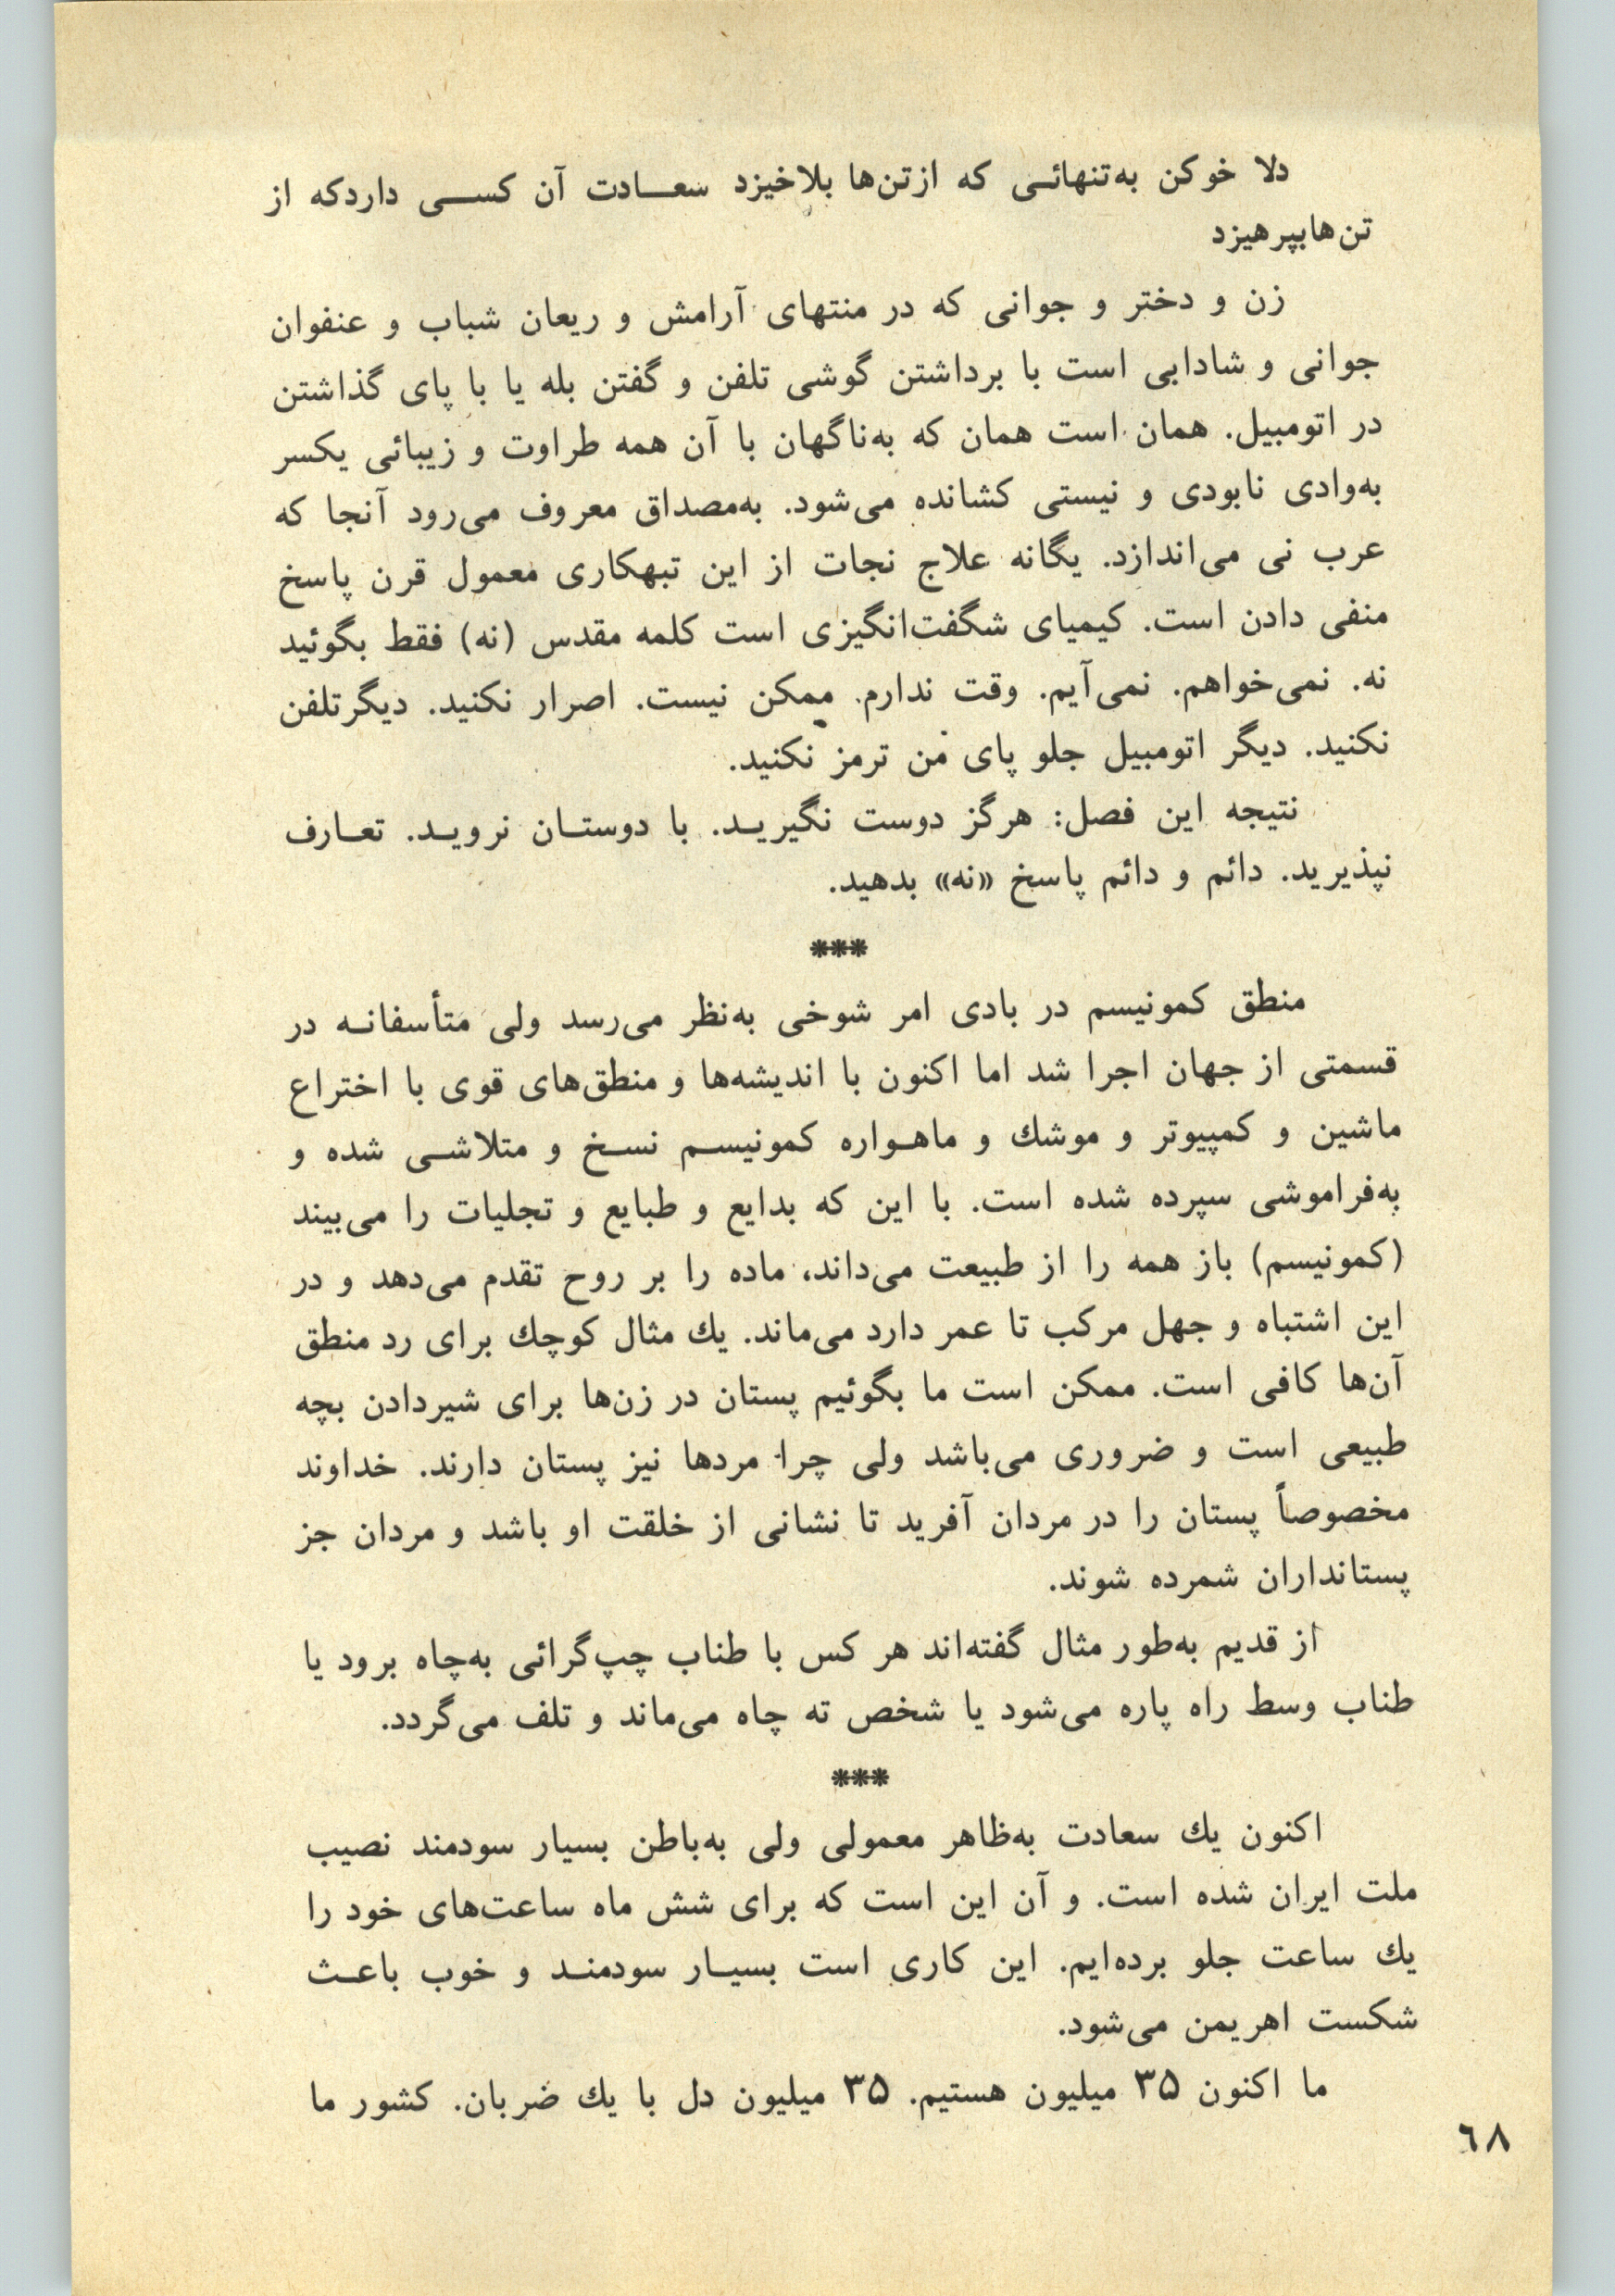 دلا خوکن به‌تنهائی که ازتن‌ها بلاخیزد سعادت آن کسی داردکه از
تن‌هابپرهیزد
زن و دختر و جوانی که در منتهای آرامش و ریعان شباب و عنفوان
جوانی و شادابی است با برداشتن گوشی تلفن و گفتن بله یا با پای گذاشتن
در اتومبیل. همان است همان که به‌ناگهان با آن همه طراوت و زیبائی یکسر
به‌وادی نابودی و نیستی کشانده می‌شود. به‌مصداق معروف می‌رود آنجا که
عرب نی می‌اندازد. یگانه علاج نجات از این تبهکاری معمول قرن پاسخ
منفی دادن است. کیمیای شگفت‌انگیزی است کلمه مقدس (نه) فقط بگوئید
نه. نمی‌خواهم. نمی‌آیم. وقت ندارم. ممکن نیست. اصرار نکنید. دیگرتلفن
نکنید. دیگر اتومبیل جلو پای من ترمز نکنید.
نتیجه این فصل: هرگز دوست نگیرید. با دوستان نروید. تعارف
نپذیرید. دائم و دائم پاسخ «نه» بدهید.
***
منطق کمونیسم در بادی امر شوخی به‌نظر می‌رسد ولی متأسفانه در
قسمتی از جهان اجرا شد اما اکنون با اندیشه‌ها و منطق‌های قوی با اختراع
ماشین و کمپیوتر و موشك و ماهواره کمونیسم نسخ و متلاشی شده و
به‌فراموشی سپرده شده است. با این که بدایع و طبایع و تجلیات را می‌بیند
(کمونیسم) باز همه را از طبیعت می‌داند، ماده را بر روح تقدم می‌دهد و در
این اشتباه و جهل مرکب تا عمر دارد می‌ماند. یك مثال کوچك برای رد منطق
آن‌ها کافی است. ممکن است ما بگوئیم پستان در زن‌ها برای شیردادن بچه
طبیعی است و ضروری می‌باشد ولی چرا مردها نیز پستان دارند. خداوند
مخصوصاً پستان را در مردان آفرید تا نشانی از خلقت او باشد و مردان جز
پستانداران شمرده شوند.
از قدیم به‌طور مثال گفته‌اند هر کس با طناب چپ‌گرائی به‌چاه برود یا
طناب وسط راه پاره می‌شود یا شخص ته چاه می‌ماند و تلف می‌گردد.
***
اکنون یك سعادت به‌ظاهر معمولی ولی به‌باطن بسیار سودمند نصیب
ملت ایران شده است. و آن این است که برای شش ماه ساعت‌های خود را
یك ساعت جلو برده‌ایم. این کاری است بسیار سودمند و خوب باعث
شکست اهریمن می‌شود.
ما اکنون ۳۵ میلیون هستیم. ۳۵ میلیون دل با یك ضربان. کشور ما
٦٨